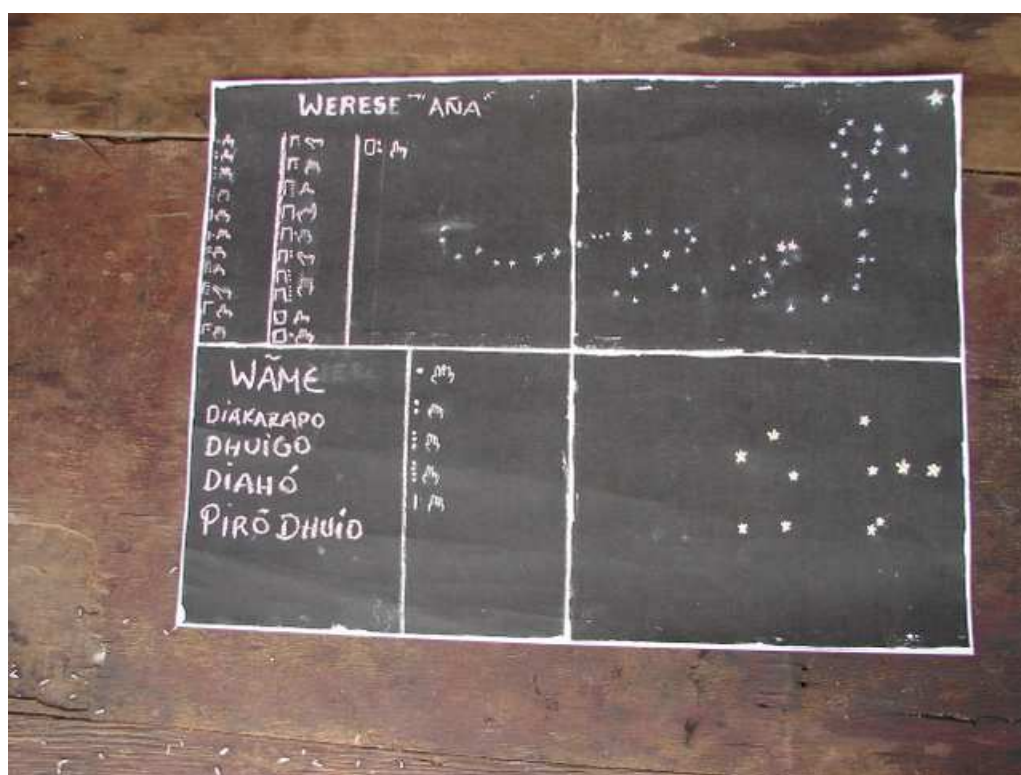 WERESE "AÑA"
WÃME
DIAKAZAPO
DHUIGO
DIAHÓ
PIRÕ DHUIO